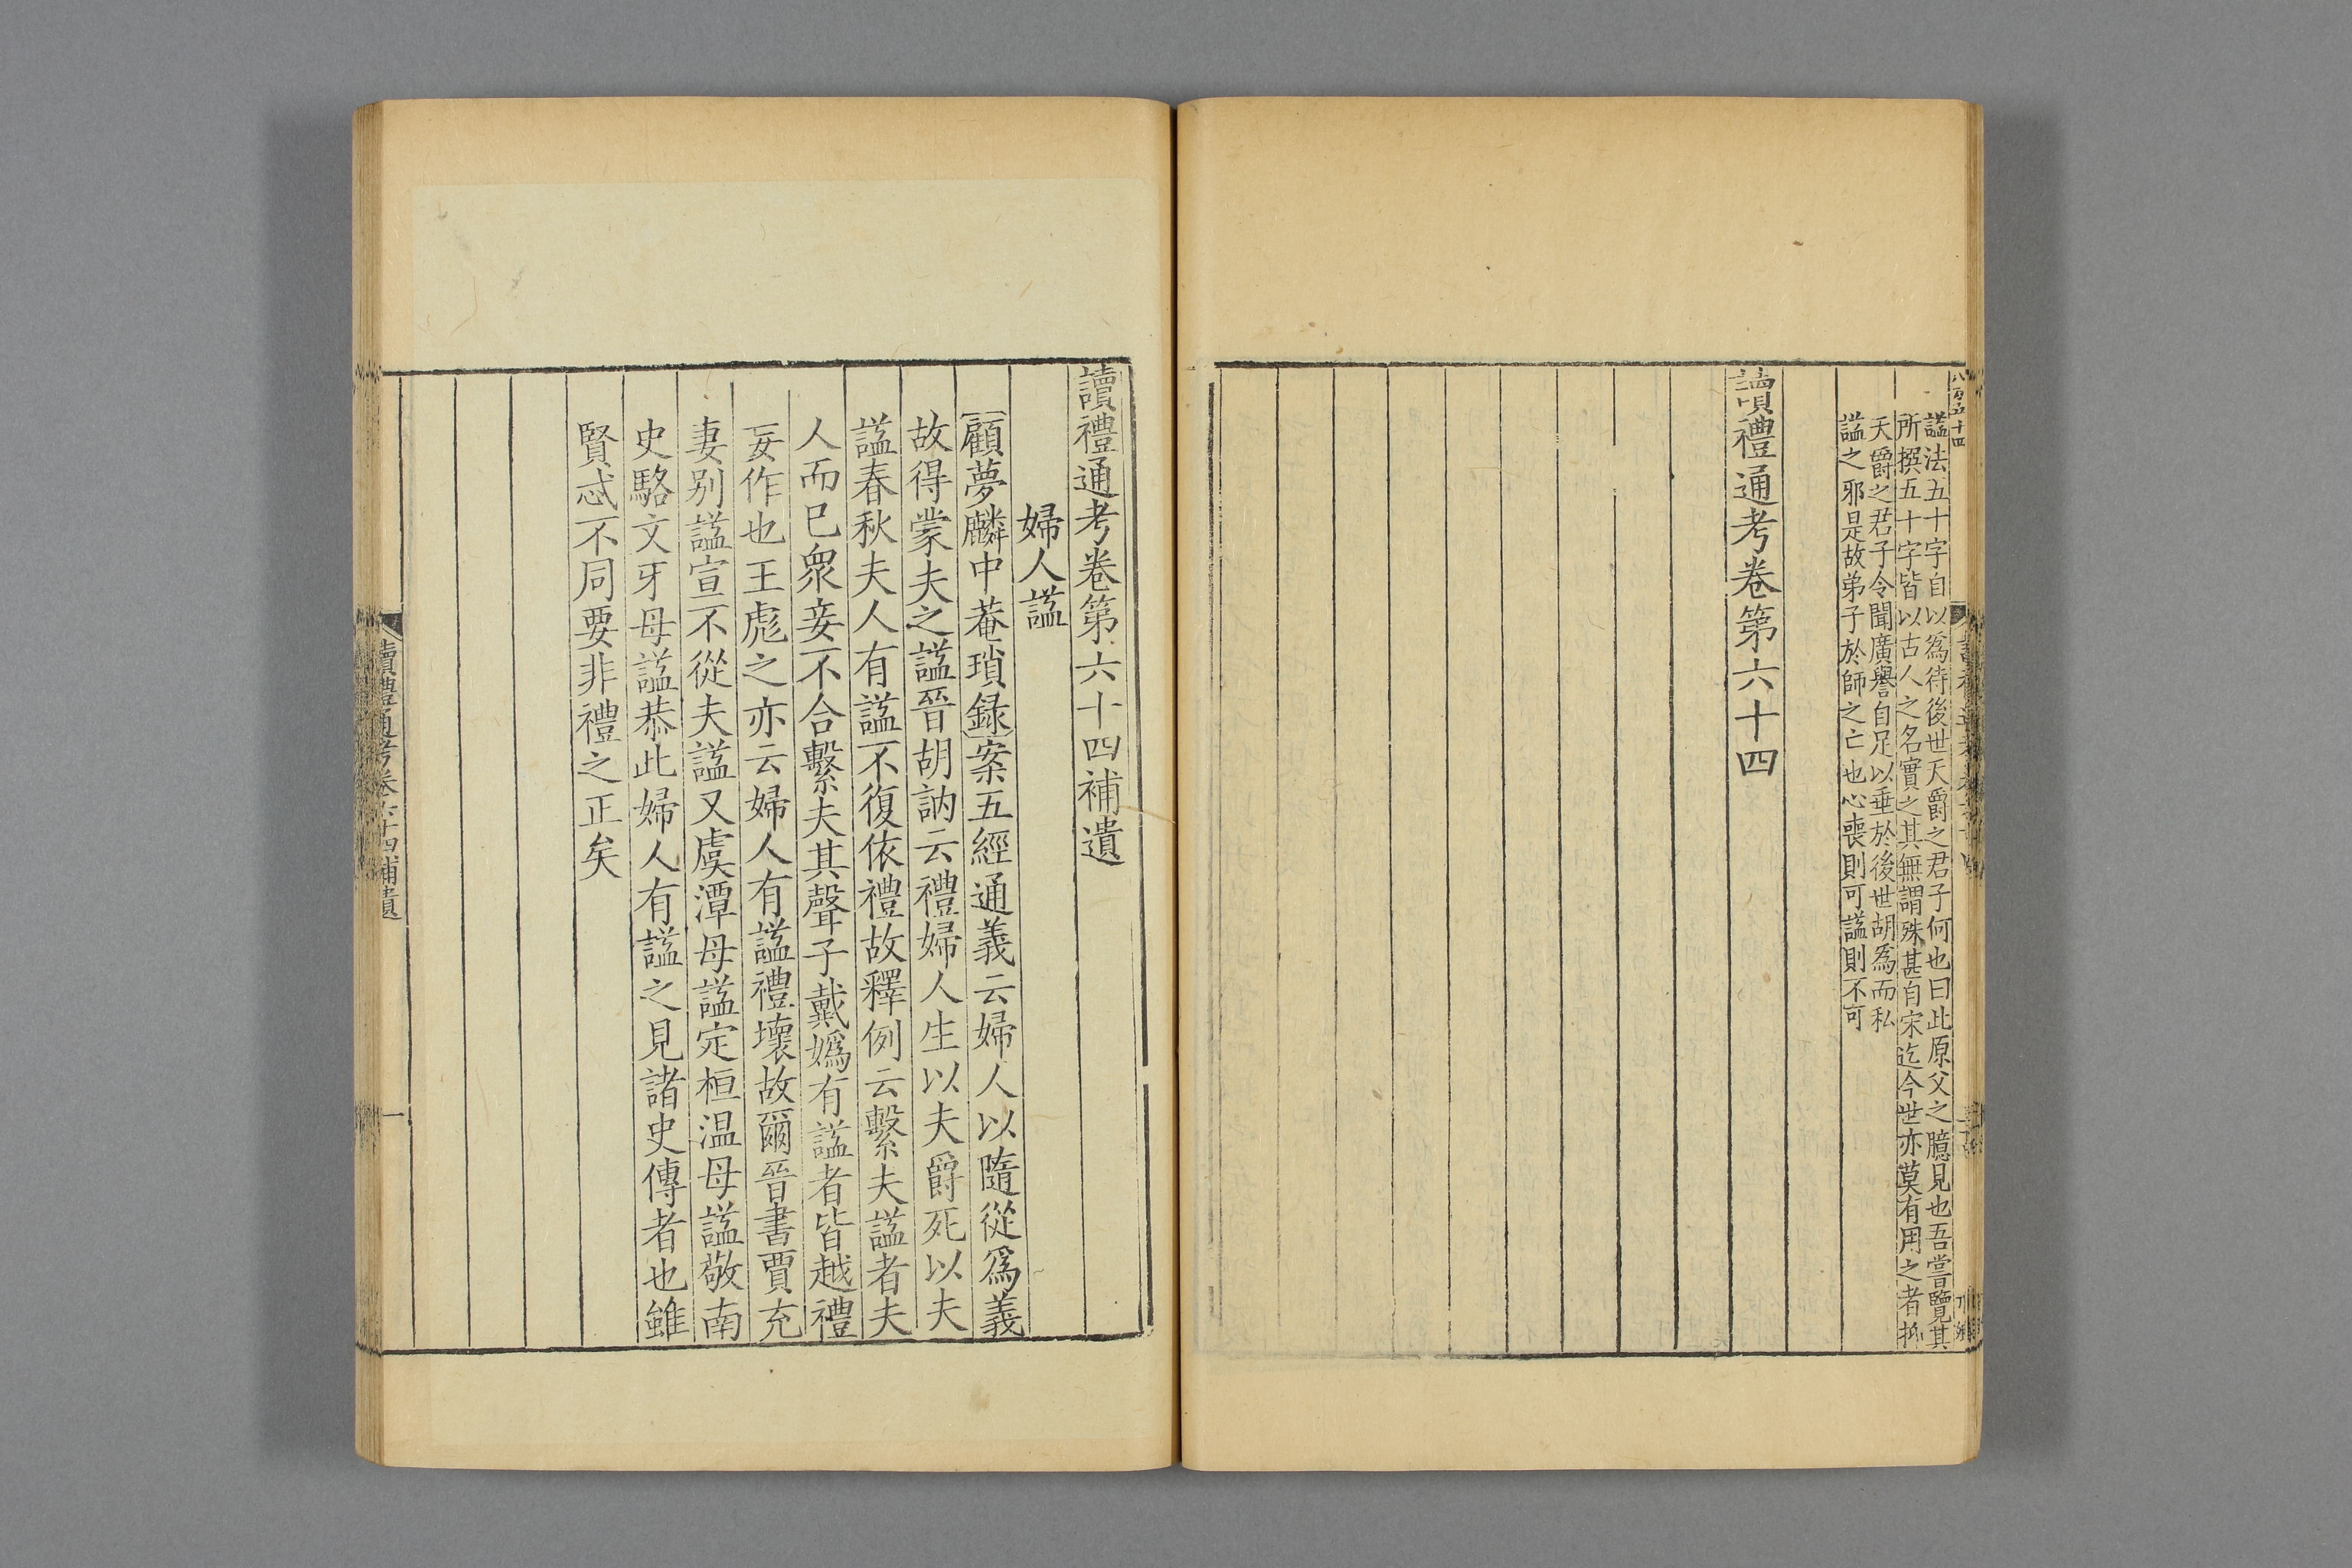 八百五十四
謚法五十字自以爲待後世天爵之君子何也曰此原父之臆見也吾嘗覽其
所撰五十字皆以古人之名實之其無謂殊甚自宋迄今世亦莫有用之者抑
天爵之君子令聞廣譽自足以垂於後世胡爲而私
謚之邪是故弟子於師之亡也心喪則可謚則不可
讀禮通考卷第六十四
讀禮通考卷第六十四補遺
婦人謚
顧夢麟中菴瑣録案五經通義云婦人以隨從爲義
故得蒙夫之謚晉胡訥云禮婦人生以夫爵死以夫
謚春秋夫人有謚不復依禮故釋例云繫夫謚者夫
人而已衆妾不合繫夫其聲子戴嬀有謚者皆越禮
妄作也王彪之亦云婦人有謚禮壞故爾晉書賈充
妻别謚宣不從夫謚又虞潭母謚定桓温母謚敬南
史駱文牙母謚恭此婦人有謚之見諸史傳者也雖
賢忒不同要非禮之正矣
讀禮通考卷六十四補遺
一